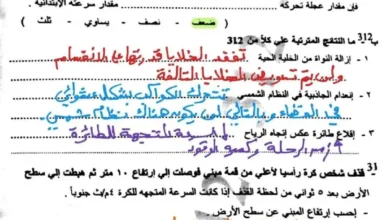 فإن مقدار عجلة تحركه مقدار سرعته الابتدائية .
( ضعف - نصف - يساوي - ثلث )
ب312 ما النتائج المترتبة على كلاً من 312
1 - إزالة النواة من الخلية الحية تفقد الخلايا قدرتها على الانقسام
ولن يتم تعويض الخلايا التالفة
2 - إنعدام الجاذبية في النظام الشمسي تتحرك الكواكب بشكل عشوائي
في الفضاء وبالتالي لن يكون هناك نظام شمسي
3 - إقلاع طائرة عكس إتجاه الرياح السرعة المتجهة للطائرة
زمن الرحلة وكمية الوقود
31
ج3 قذف شخص كرة رأسياً لأعلي من قمة مبني فوصلت إلي إرتفاع ١٠ متر ثم هبطت إلي سطح
الأرض بعد ٥ ثواني من لحظة القذف إذا كانت السرعة المتجهه للكرة ٤م/ث جنوباً .
- إحسب إرتفاع المبني عن سطح الأرض .